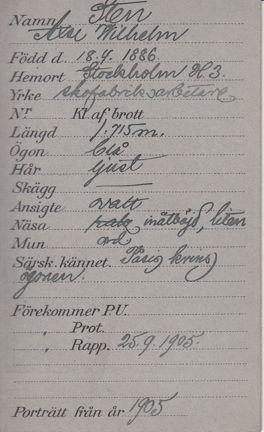 Namn Sten
Axel Wilhelm
Född d. 18.4. 1886.
Hemort Stockholm H 3.
Yrke skofabriksarbetare
Nr Kl. af brott
Längd 1.715 m.
Ögon blå
Hår ljust
Skägg —
Ansigte ovalt
Näsa rak inåtböjd, liten
Mun ord
Särsk. kännet. Påsig kring
ögonen.
Förekommer P.U.
" Prot.
" Rapp. 25.9.1905.
Porträtt från år 1905